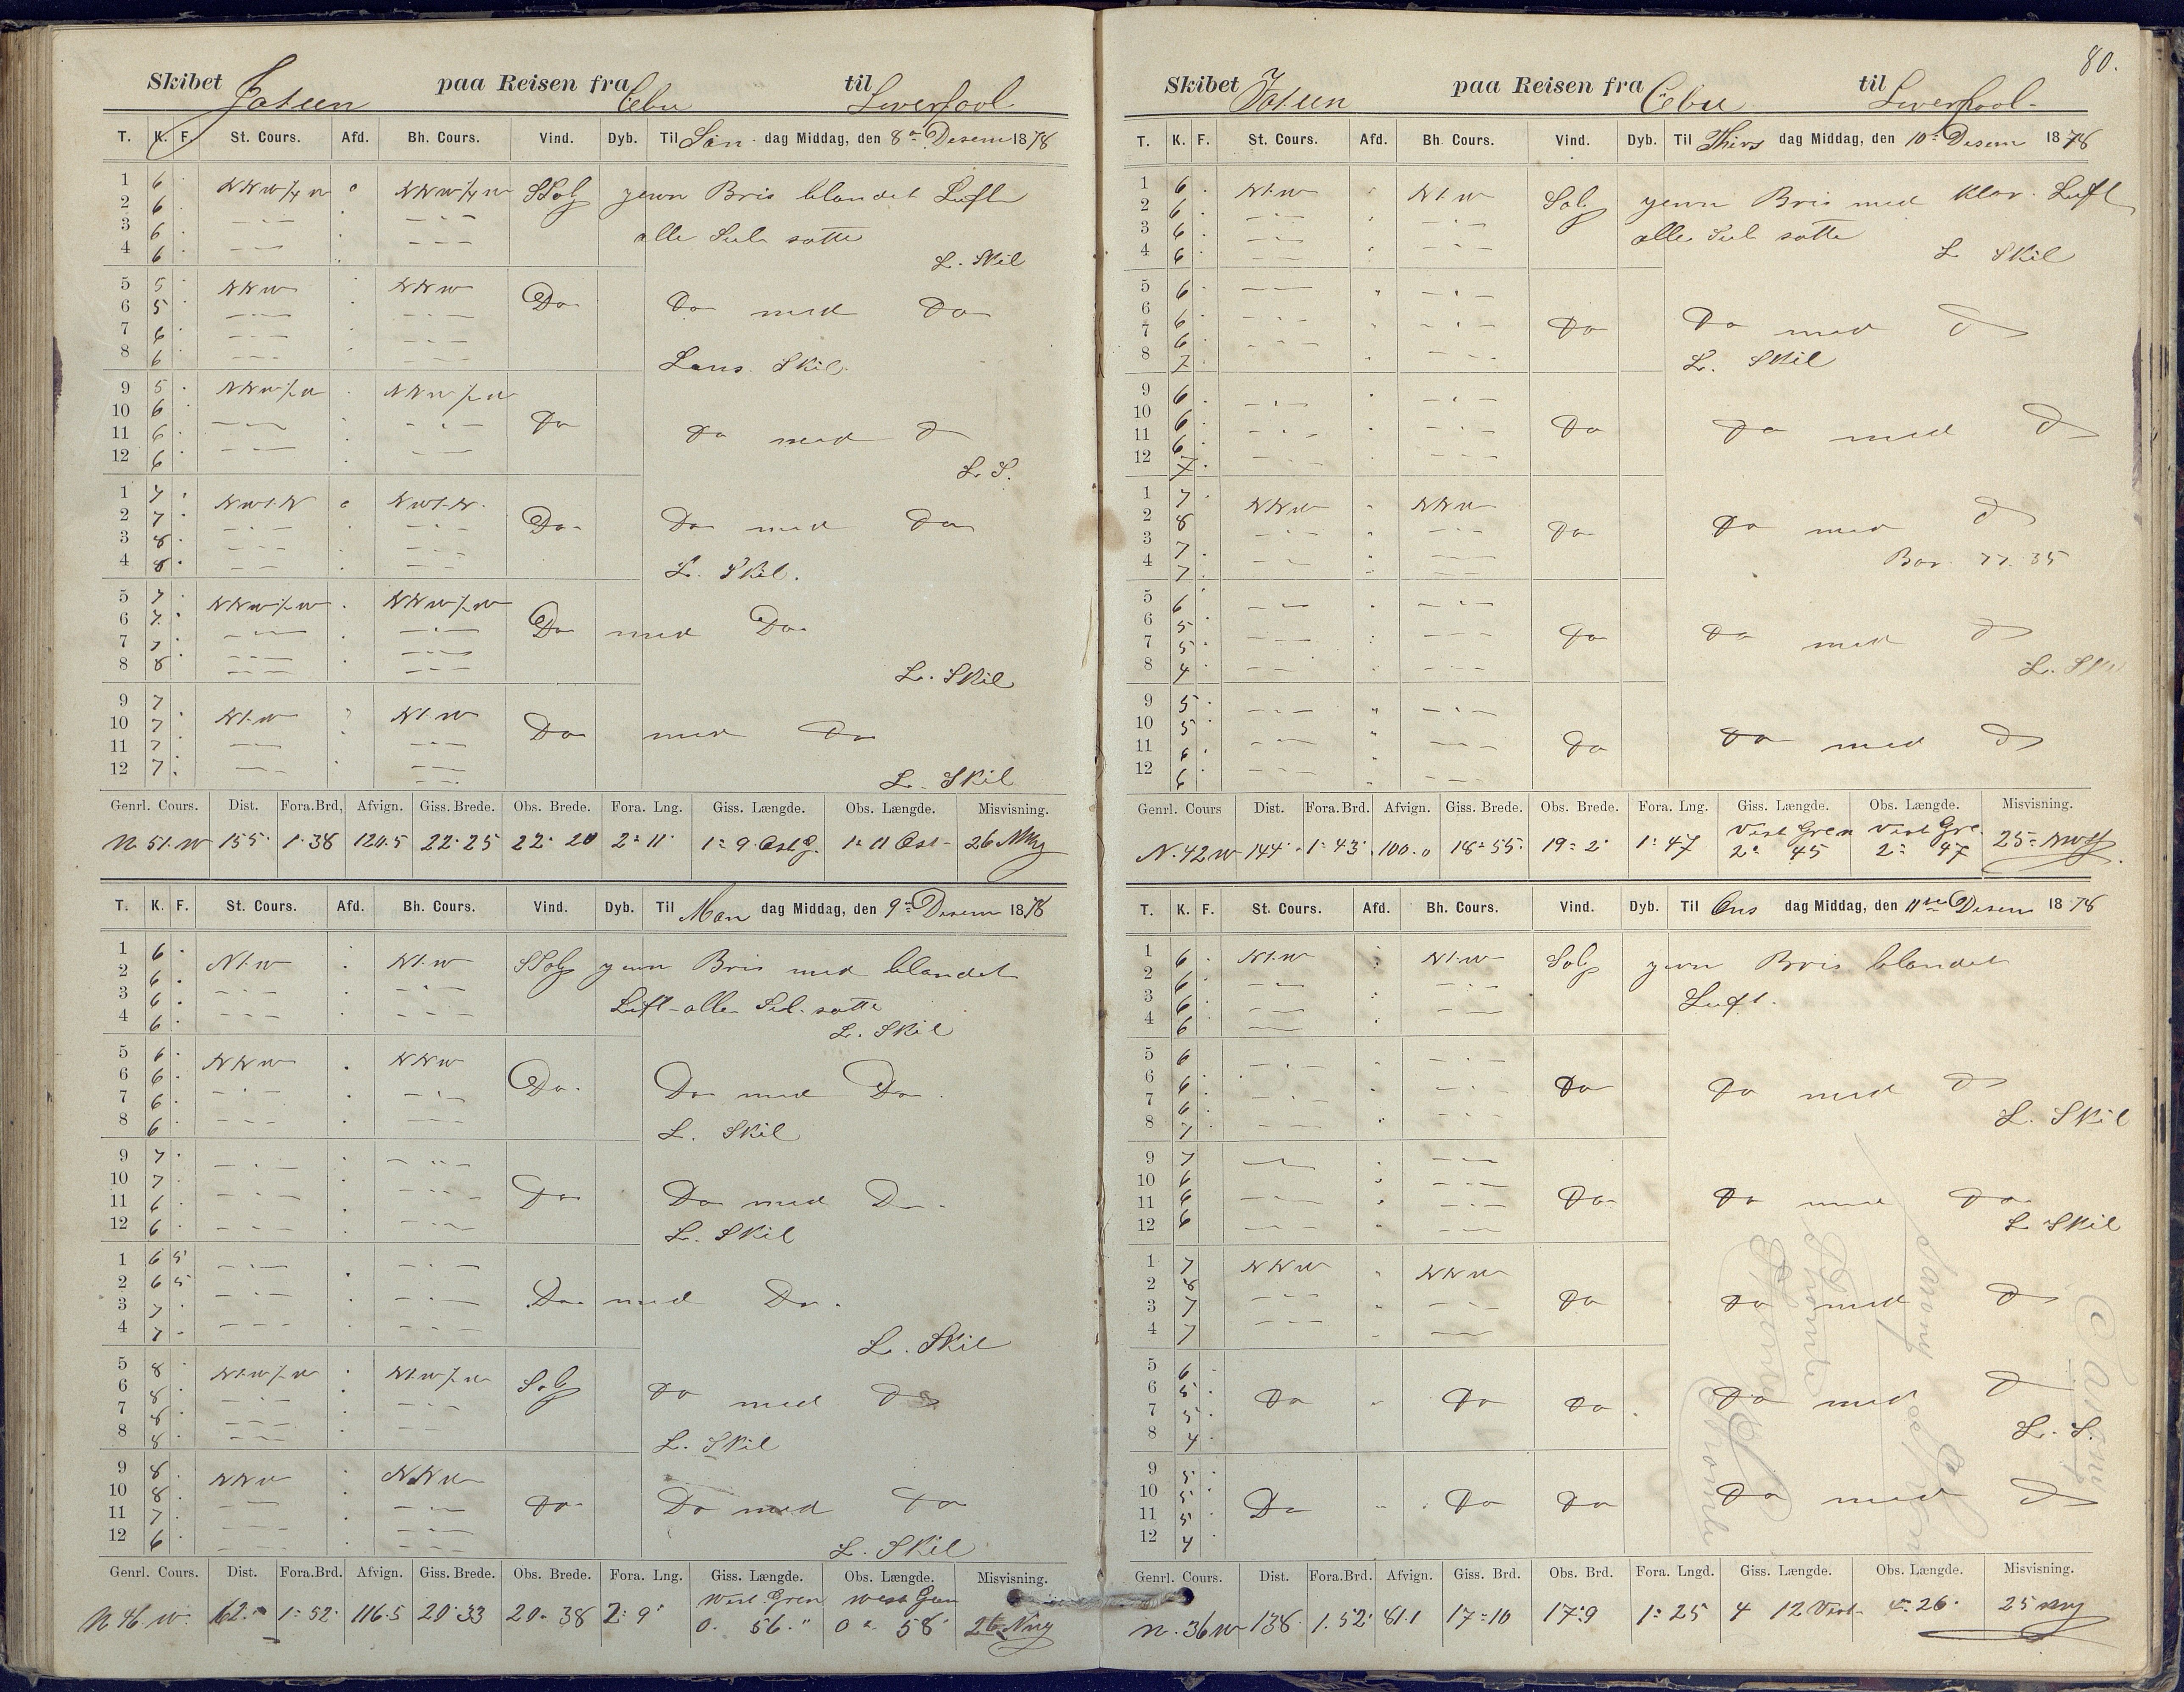 Skibet Jotun paa Reisen fra Cebu til Liverpool
T. K. F. St. Cours. Afd. Bh. Cours. Vind. Dyb. Til Søn dag Middag, den 8de Desem 1878
1 6 NNW ½ W NNW ½ W SSO jevn Bris blandet Luft
2 6
3 6 alle Seil satte
4 6 L. Skil
5 5 NNW NNW Do Do med Do
6 5
7 6
8 6 Lans. Skil
9 5 NNW ½ W NNW ½ W
10 6 Do Do med D
11 6
12 6 L. S.
1 7 NWt.N NWt.N. Do Do med Do
2 7
3 8
4 8 L. Skil.
5 7 NNW ½ W NNW ½ W
6 7 Do med Do
7 7
8 8 L. Skil
9 7
10 7 Nt.W Nt.W Do med Do
11 7
12 7 L. Skil
Genrl. Cours. Dist. Fora.Brd, Afvign. Giss. Brede. Obs. Brede. Fora. Lng. Giss. Længde. Obs. Længde. Misvisning.
N. 51. W 155 1.38 120.5 22.25 22.20 2.11 1.9 Ost G. 1.11 Ost 26
T. K. F. St. Cours. Afd. Bh. Cours. Vind. Dyb. Til Man dag Middag, den 9de Desem 1878
1 6 Nt.W Nt.W SSO jevn Bris med blandet
2 6
3 6 Luft alle Seil satte
4 6 L. Skil
5 6 NNW NNW
6 6 Do. Do med Do
7 6
8 6 L. Skil
9 7
10 7 Do Do med Do
11 6
12 6 L. Skil
1 6 5
2 6 5 Do med Do.
3 7
4 7 L. Skil
5 8 Nt.W ½ W Nt.W ½ W SO
6 8 Do med Do
7 8
8 8 L. Skil
9 8 NNW NNW
10 8 Do Do med Do
11 7
12 6 L. Skil
Genrl. Cours. Dist. Fora.Brd. Afvign. Giss. Brede. Obs. Brede. Fora. Lng. Giss. Længde. Obs. Længde. Misvisning.
West Gren West Gren
N 46. W. 162. 1.52 116.5 20.33 20.38 2.9 0. 56 0. 58 26
80.
Skibet Jotun paa Reisen fra Cebu til Liverpool
T. K. F. St. Cours. Afd. Bh. Cours. Vind. Dyb. Til Thirs dag Middag, den 10de Desem 1878
1 6 Nt.W Nt.W SO jevn Bris med klar Luft
2 6
3 6 alle Seil satte
4 6 L Skil
5 6
6 6 Do Do med D
7 6
8 7 L. Skil
9 6
10 6 Do Do med D
11 6
12 7
1 7 NNW NNW
2 8 Do Do med D
3 7
4 7 Bar. 77.35
5 6
6 5 Do Do med D
7 5
8 4 L. Skil
9 5
10 5
11 6 Do Do med D
12 6
Genrl. Cours Dist. Fora.Brd. Afvign. Giss. Brede. Obs. Brede. Fora. Lng. Giss. Længde. Obs. Længde. Misvisning.
Vest Gren Vest Gre
N. 42 W 144 1.43 100.0 18.55 19.2 1.47 2. 45 2. 47 25
T. K. F. St. Cours. Afd. Bh. Cours. Vind. Dyb. Til Ons dag Middag, den 11te Desem 1878
1 6 Nt.W Nt.W SO jevn Bris blandet
2 6
3 6 Luft.
4 6
5 6
6 6 Do Do med D
7 6
8 7 L. Skil
9 7
10 6
11 6 Do Do med Do
12 6 L Skil
1 7 NNW NNW
2 8
3 7 Do Do med D
4 7
5 6
6 5 Do Do Do Do med D
7 5
8 4 L. S.
9 5
10 5 Do Do Do Do med D
11 5
12 4
Genrl. Cours. Dist. Fora.Brd. Afvign. Giss. Brd. Obs. Brd. Fora. Lngd. Giss. Længde. Obs. Længde. Misvisning.
N. 36 W 138 1.52 81.1 17.10 17.9 1.25 4 12 Vest 4.26 25